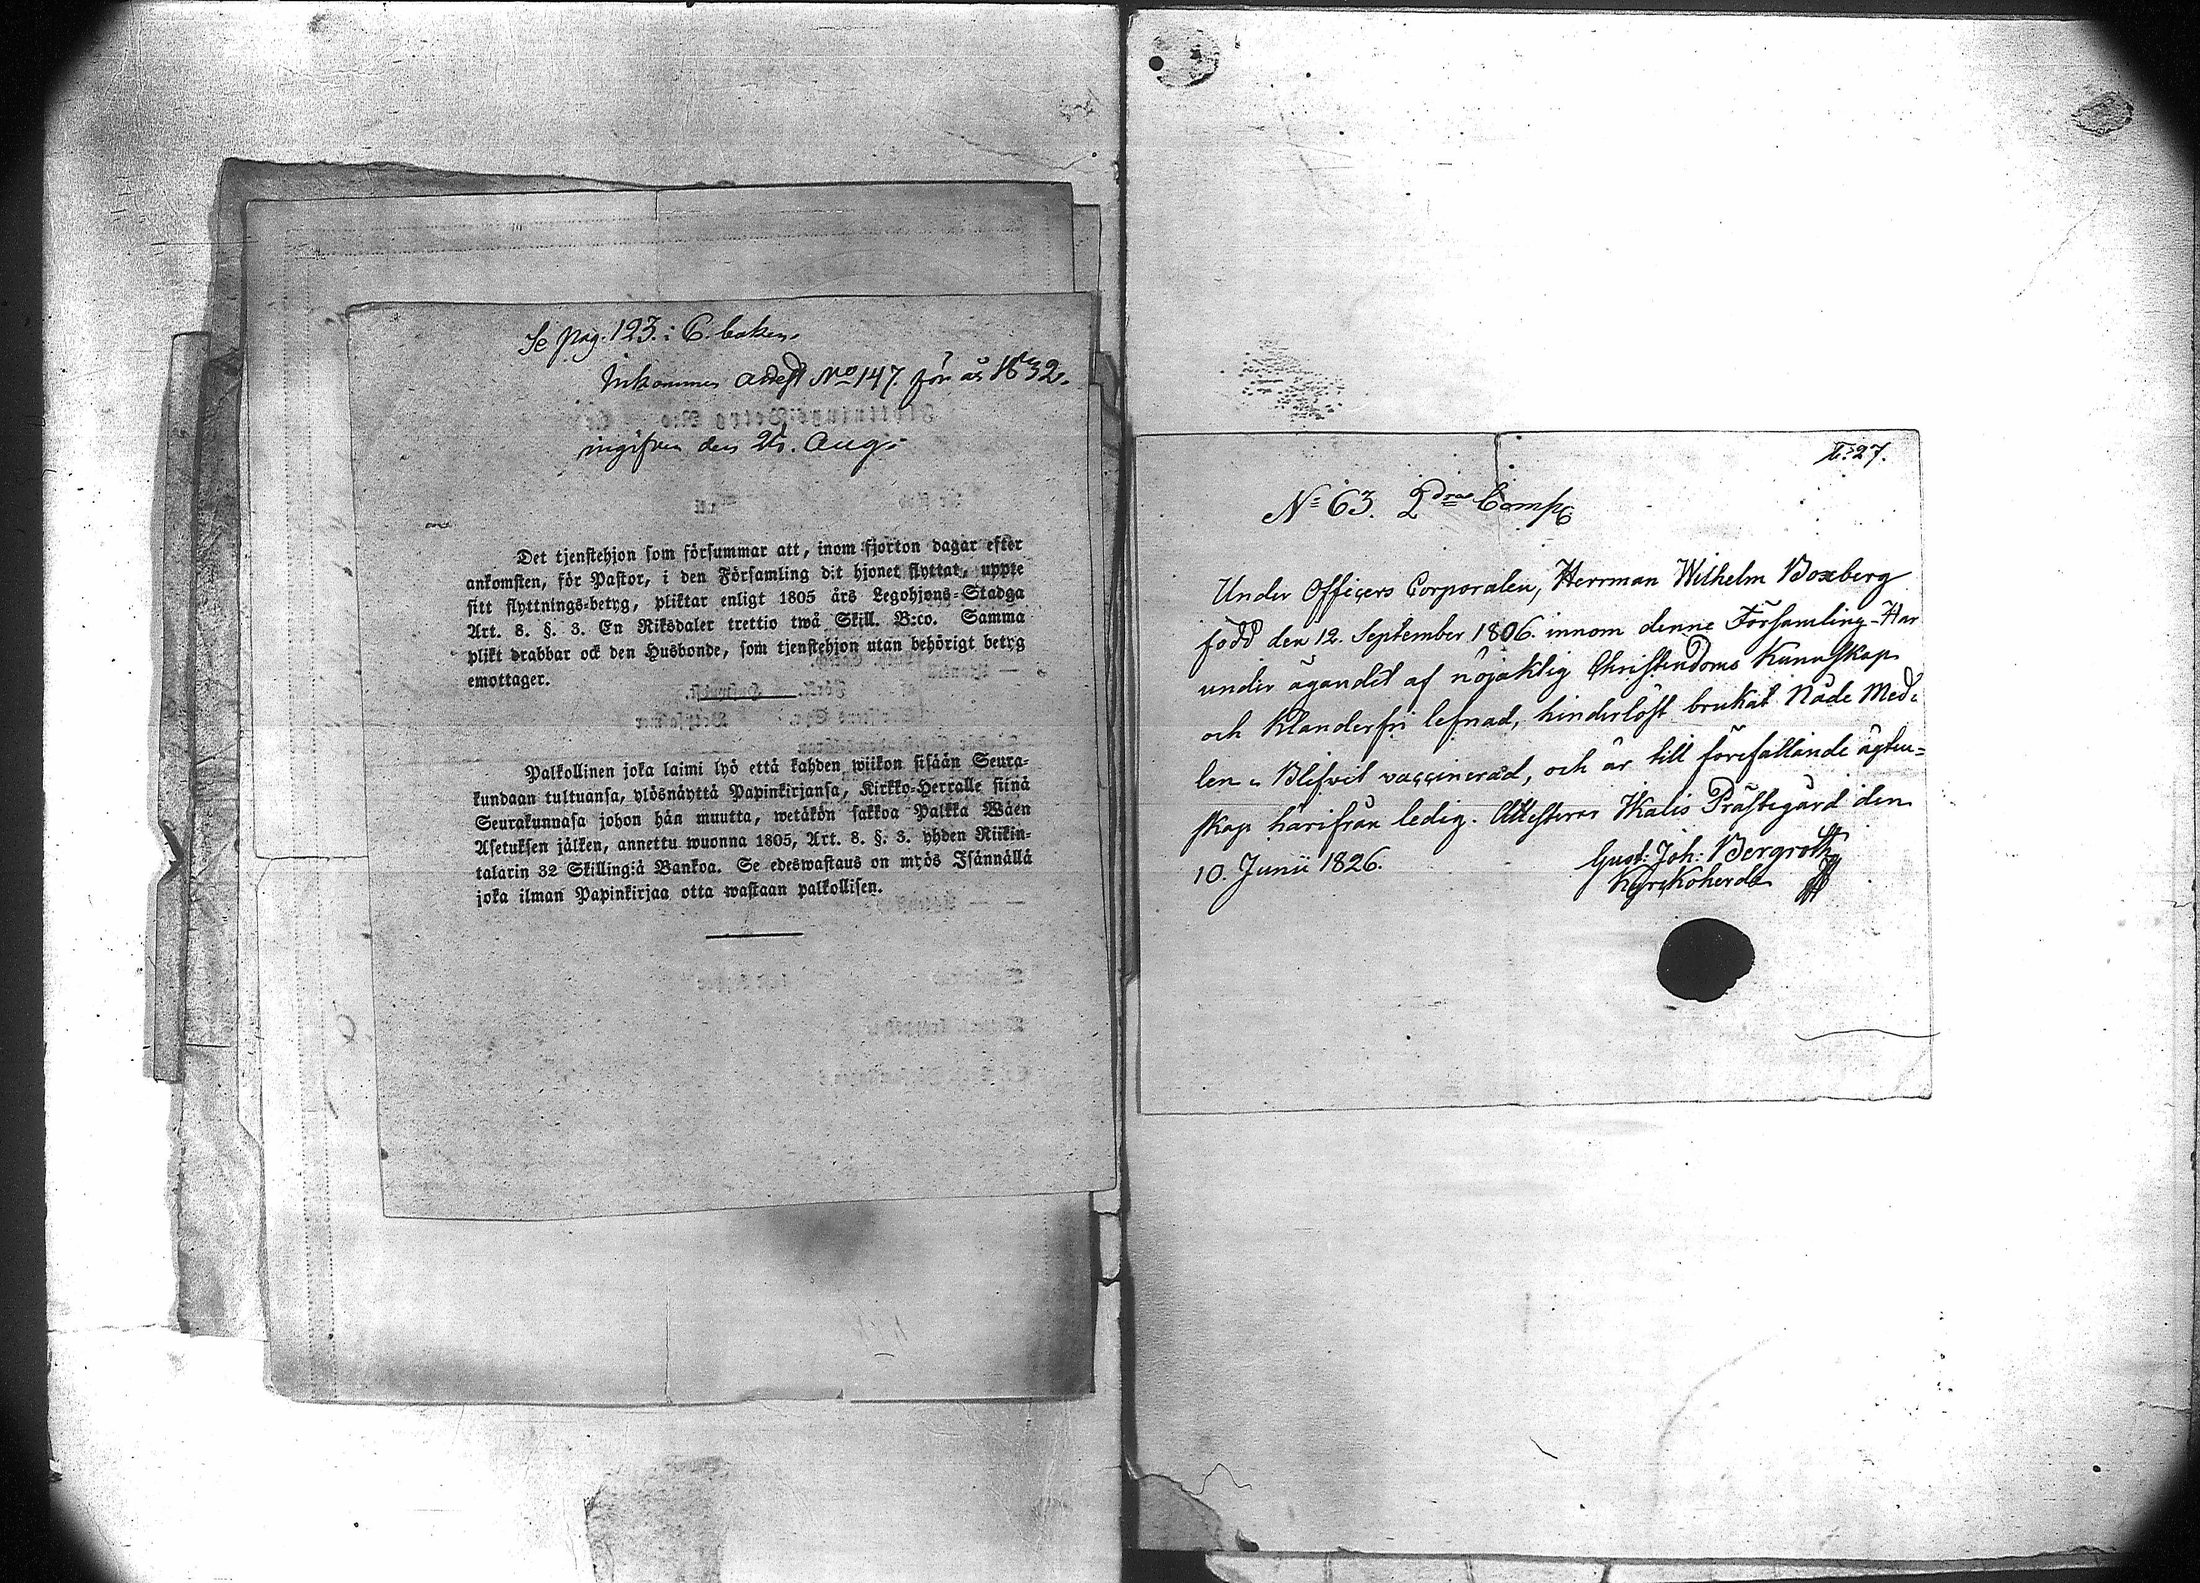 Se pag. 123. i C. boken.
Inkommen attest No 147. för år 1832.
ingifven den 26. Aug:
Det tjenstehjon som försummar att, inom fjorton dagar efter
ankomsten, för Pastor, i den Församling dit hjonet flyttat, uppte
sitt flyttnings-betyg, pliktar enligt 1805 års Legohjons-Stadga
Art. 8. §. 3. En Riksdaler trettio twå Skill. B:co. Samma
plikt drabbar ock den Husbonde, som tjenstehjon utan behörigt betyg
emottager.
Palkollinen joka laimi lyö että kahden wiikon sisään Seura-
kundaan tultuansa, ylösnäyttä Papinkirjansa, Kirkko-Herralle siinä
Seurakunnasa johon hän muutta, wetäkön sakkoa Palkka Wäen
Asetuksen jälken, annettu wuonna 1805, Art. 8. §. 3. yhden Riikin-
talarin 32 Skilling:iä Bankoa. Se edeswastaus on myös Isännällä
joka ilman Papinkirjaa otta wastaan palkollisen.
27.
No 63. 2dra Comp
Under Officers Corporalen, Herrman Wilhelm Boxberg
född den 12. September 1806. innom denne Församling - Har
under ägandet af nöjaktig Christendoms Kunnskap
och Klanderfri lefnad, hinderlöst brukat Nåde Med-
len - Blifvit vaccinerad, och är till förefallande ägten-
skap härifrån ledig. Attesterar Ikalis Prästegård den
10. Junii 1826.
Gust: Joh: Bergroth
Kyrckoherde